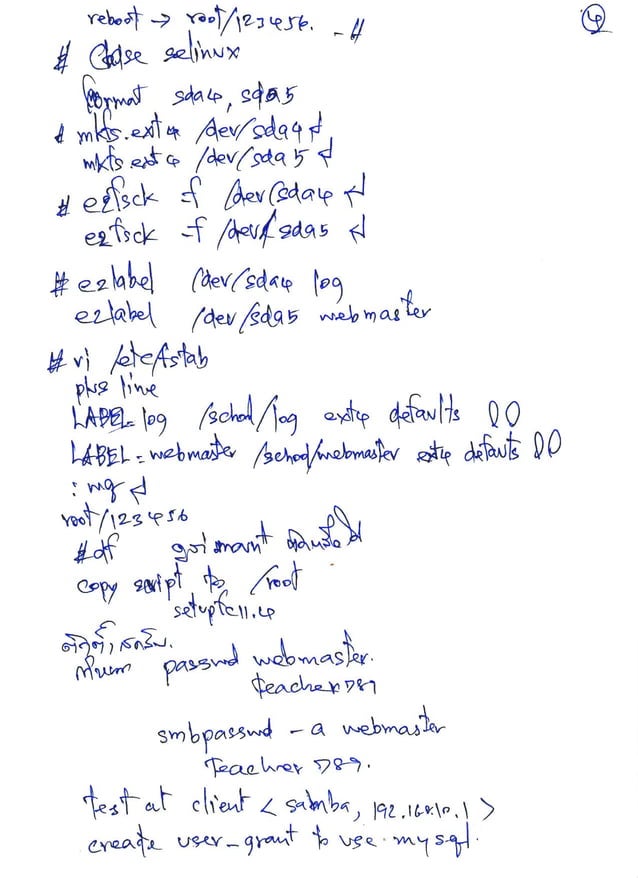 ④
reboot → root/123456. -#
# Close selinux
format sda4, sda5
# mkfs.ext4 /dev/sda4 ↲
mkfs ext4 /dev/sda5 ↲
# e2fsck -f /dev/sda4 ↲
e2fsck -f /dev/sda5 ↲
# e2label /dev/sda4 log
e2label /dev/sda5 webmaster
# vi /etc/fstab
plus line
LABEL=log /school/log ext4 defaults 0 0
LABEL=webmaster /school/webmaster ext4 defaults 0 0
: wq ↲
root/123456
#df ดูว่า mount
copy script to /root
setupfc11.4
กำหนด passwd webmaster.
teacher789
smbpasswd -a webmaster
Teacher789.
test at client < samba, 192.168.10.1 >
create user_grant to use mysql.